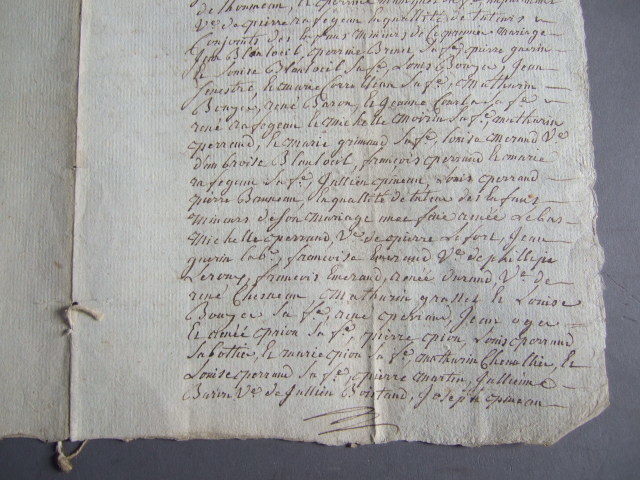 de Thonneau, et perrine
Ve de pierre rafegeau en quallité de tuteurs
Conjoints des Enfans mineurs de Ce premier mariage
Jean Blanloeil, perrine Brenet, Sa fe, pierre guerin
et Louise Blanloeil Sa fe, Louis Bouyer, Jean
fenestre, et marie Sorre Sa fe, mathurin
Bouyer, rené Baron, et Jeanne Courba Sa fe
rené rafegeau et michelle moirin Sa fe, mathurin
perraud, et marie grimaud Sa fe, louise merand Ve
d'ambroise Blanloeil, françois perraud et marie
rafegeau Sa fe, Jullien pineau, Louis perraud
pierre Bonneau, En quallité de tuteur des Enfans
mineurs de Son mariage avec feüe renée Lebas
michelle perraud, Ve de pierre Lefort, Jean
guerin labr, françoise Emeraud Ve de phillipe
Leroux, françois Emeraud, renée durand Ve de
rené Chesneau, mathurin grasset et Louise
Bouyer Sa fe, rené perraud, Jean oger
Et renée prion Sa fe, pierre pion, Louis perraud
Sabottier, et marie pion Sa fe, mathurin Chevallier, Et
Louise perraud Sa fe, pierre martin, Jullienne
Baron Ve de Jullien Boistaud, Joseph pineau